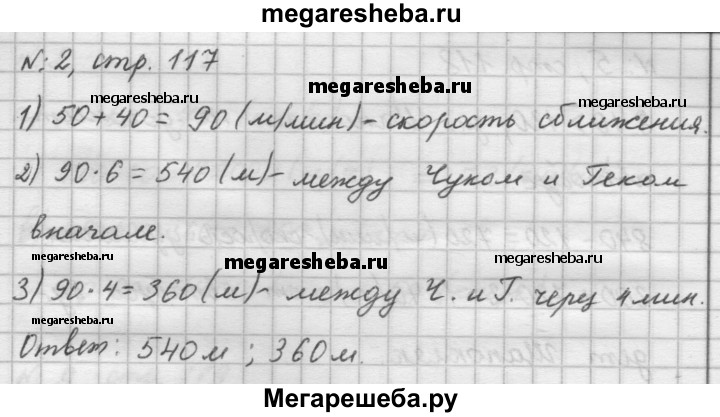 megaresheba.ru
№ 2, стр. 117
megaresheba.ru
megaresheba.ru
1) 50 + 40 = 90 (м/мин) - скорость сближения.
2) 90 · 6 = 540 (м) - между Чуком и Геком
вначале.
megaresheba.ru
megaresheba.ru
3) 90 · 4 = 360 (м) - между Ч. и Г. через 4 мин.
megaresheba.ru
Ответ: 540 м ; 360 м.
megaresheba.ru
Мегарешеба.ру